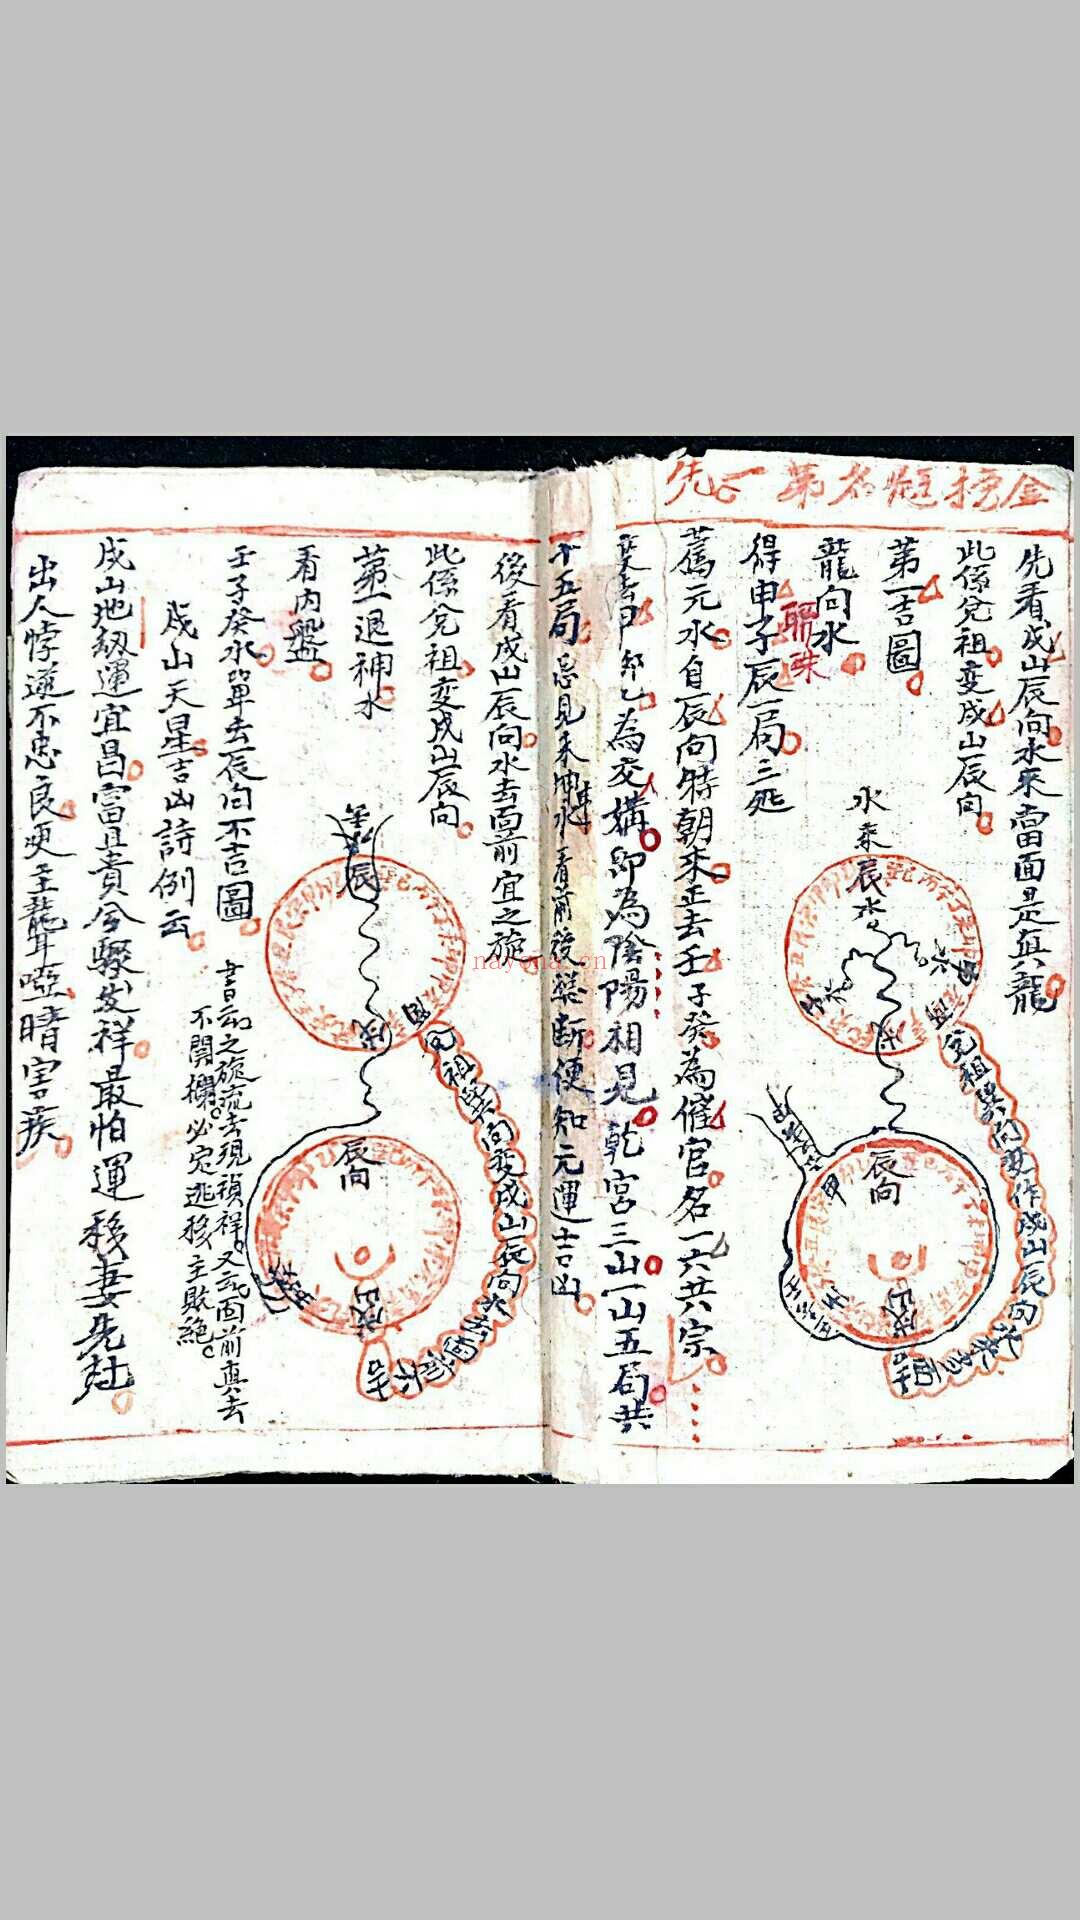 金榜題名第一先
先看戍山辰向水來當面是真龍
此係兌祖变戍山辰向
第一吉圖
龍向水
得申子辰一局三
聯珠
萬元水自辰向特朝來正去壬子癸為催官名一六共宗
甲卯乙為交媾卽為陰陽相見乾宮三山一山五局共
十五局忌見未坤水看前後總断便知元運吉凶
水來辰水
辰向
兌祖巽向变作戍山辰向
後看戍山辰向水去面前宜之旋
此係兌祖变戍山辰向
第一退神水
看内盤
壬子癸水單去辰向不吉圖
戍山天星吉凶詩例云
書云之旋流去現禎祥又云面前真去
不關欄必定逃移主敗絶
辰
辰向
兌祖巽向变戍山辰向水去
戍山地劔運宜昌富且貴今驟发祥最怕運移妻先
出人悖逆不忠良更主聾啞睛害疾
nayona.cn